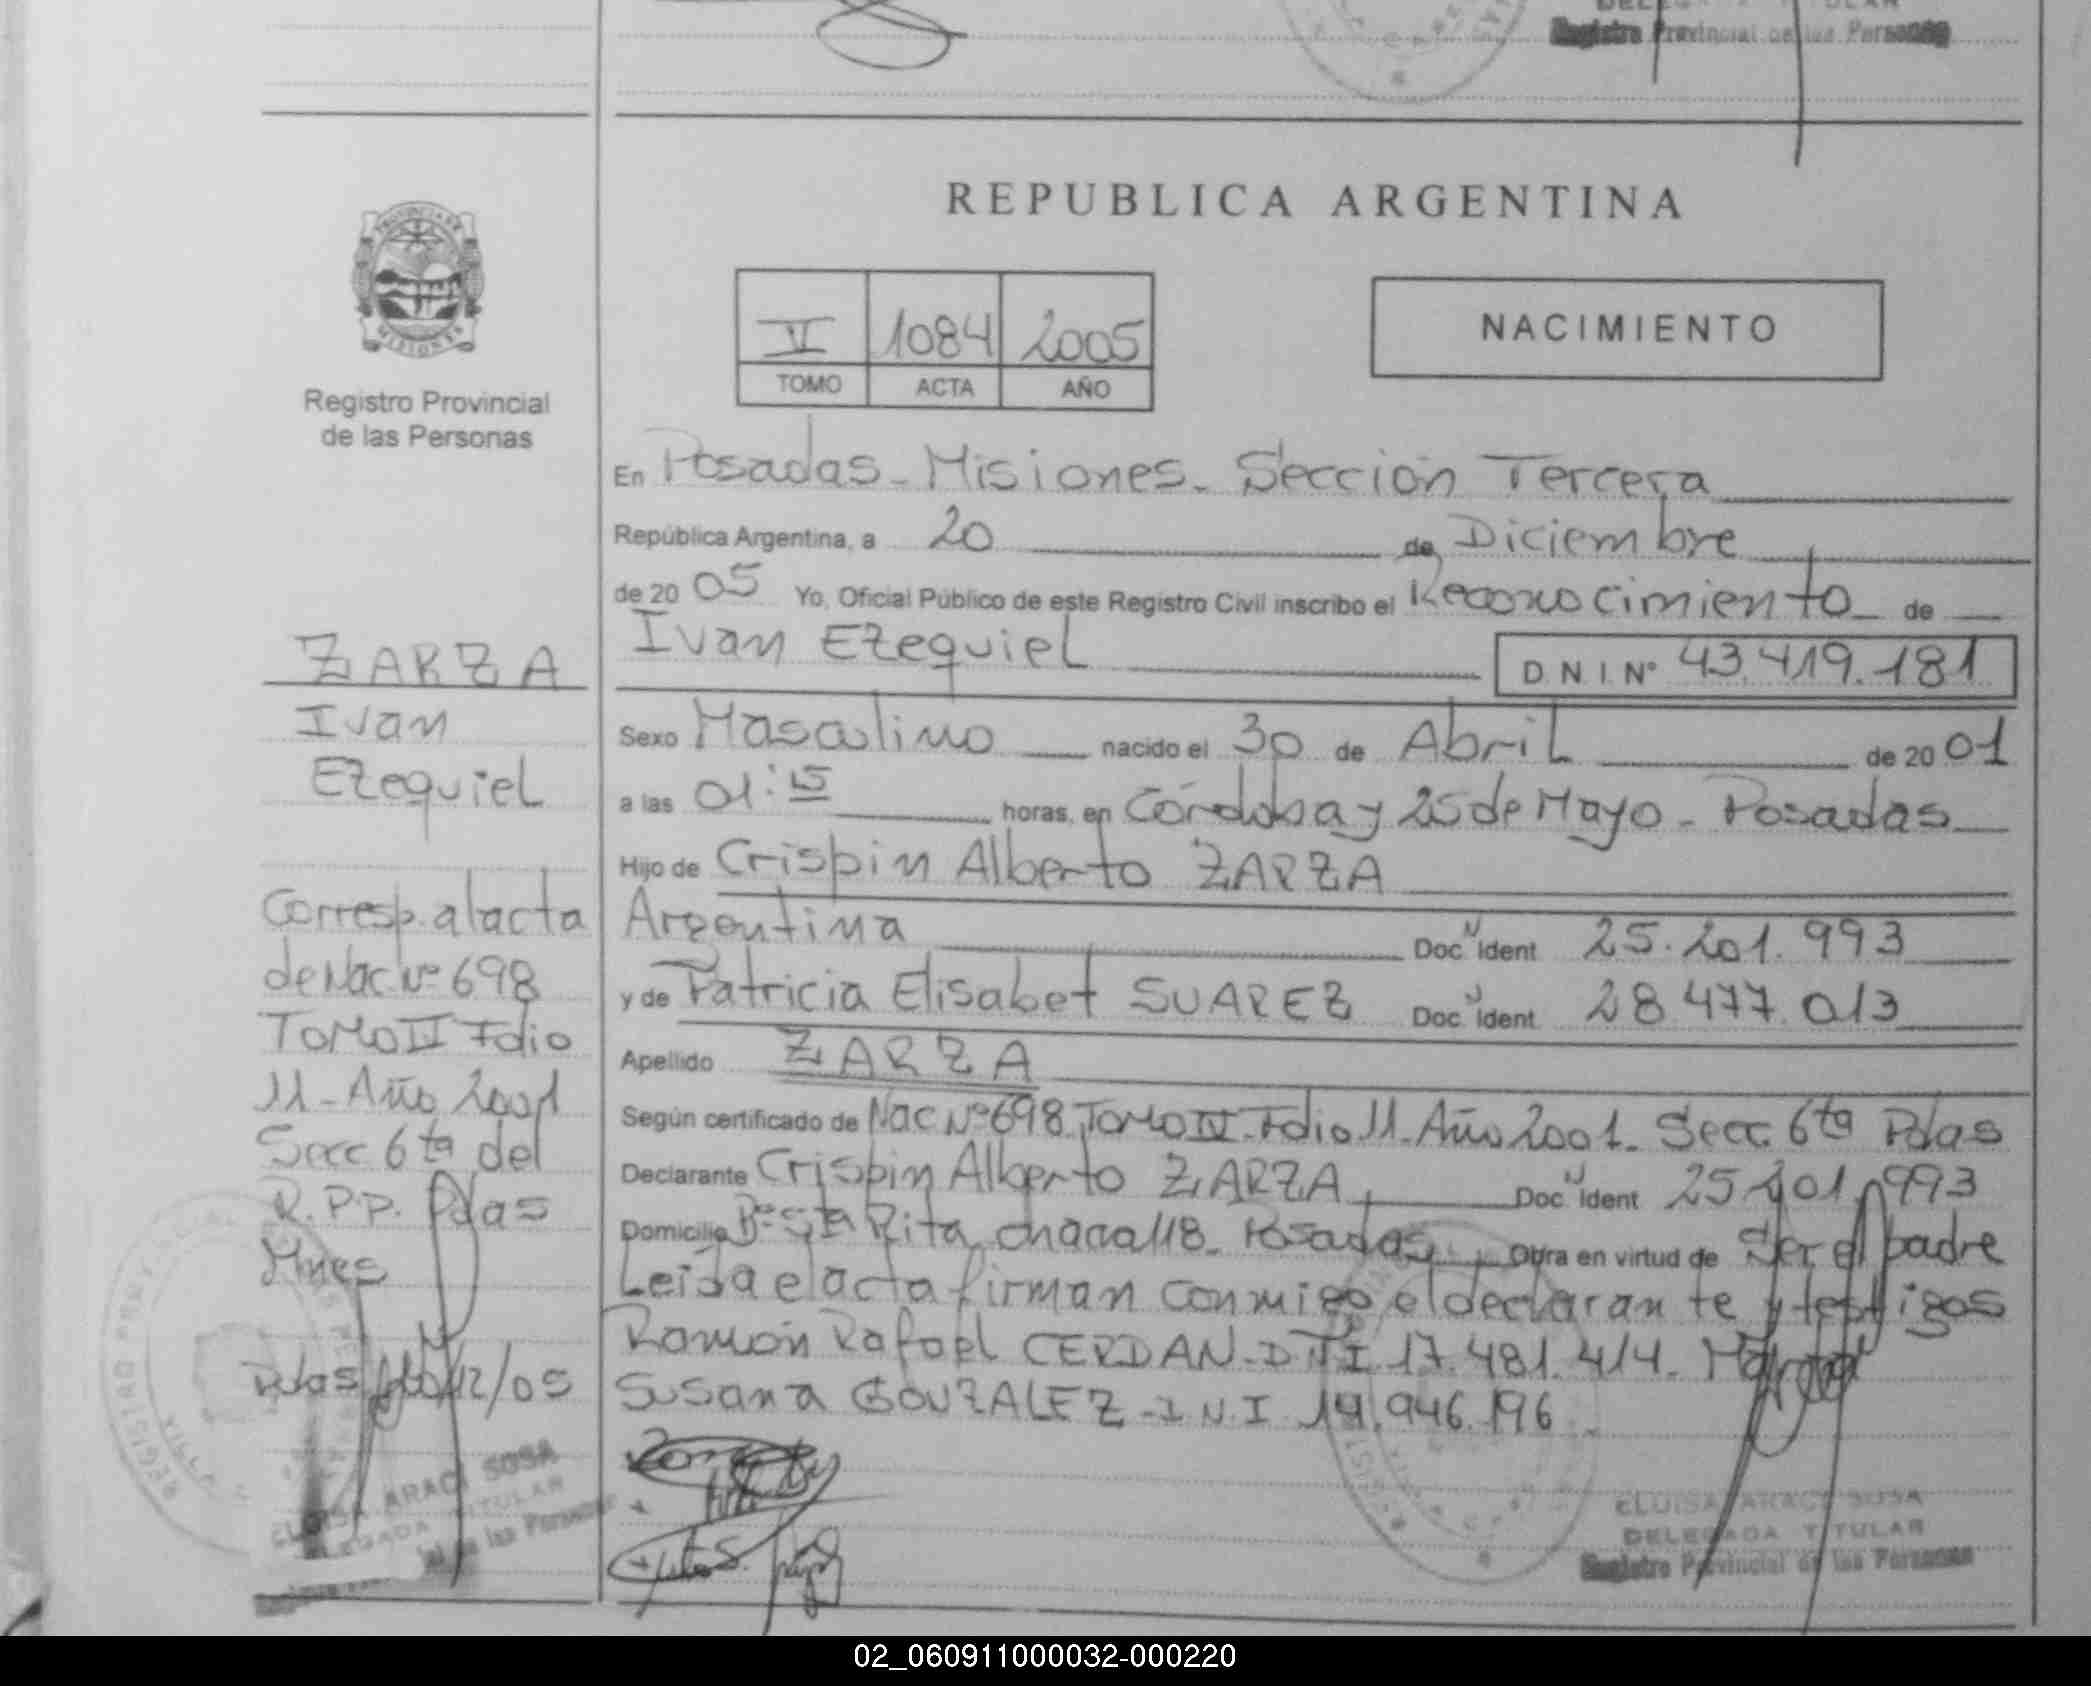 Registro Provincial de las Personas
REPUBLICA ARGENTINA
V 1084 2005
TOMO ACTA AÑO
NACIMIENTO
PROVINCIA DE
MISIONES
Registro Provincial
de las Personas
ZARZA
Ivan
Ezequiel
Corresp. al acta
de Nac Nº 698
TOMO II Folio
11 - Año 2001
Secc 6ta del
R.P.P. Pdas
Mnes
Pdas 20/12/05
ELOISA ARACI SOSA
DELEGADA TITULAR
En Posadas - Misiones - Sección Tercera
República Argentina, a 20 de Diciembre
de 20 05 Yo, Oficial Público de este Registro Civil inscribo el Reconocimiento de
Ivan Ezequiel D.N.I. Nº 43.419.181
Sexo Masculino nacido el 30 de Abril de 20 01
a las 01:15 horas, en Córdoba y 25 de Mayo - Posadas
Hijo de Crispin Alberto ZARZA
Argentina Doc. Ident 25.201.993
y de Patricia Elisabet SUAREZ Doc. Ident 28 477.013
Apellido ZARZA
Según certificado de Nac Nº 698 TOMO IV - Folio 11 - Año 2001 - Secc. 6ta Pdas
Declarante Crispin Alberto ZARZA Doc. Ident 25 201.993
Domicilio Bº Sta Rita chacra 118 - Posadas Obra en virtud de Ser el padre
Leída el acta firman conmigo el declarante y testigos
Ramón Rafael CERDAN - DNI 17.481.414 -
Susana GONZALEZ - D.N.I 14.946.196
ELOISA ARACI SOSA
DELEGADA TITULAR
Registro Provincial de las Personas
02_060911000032-000220